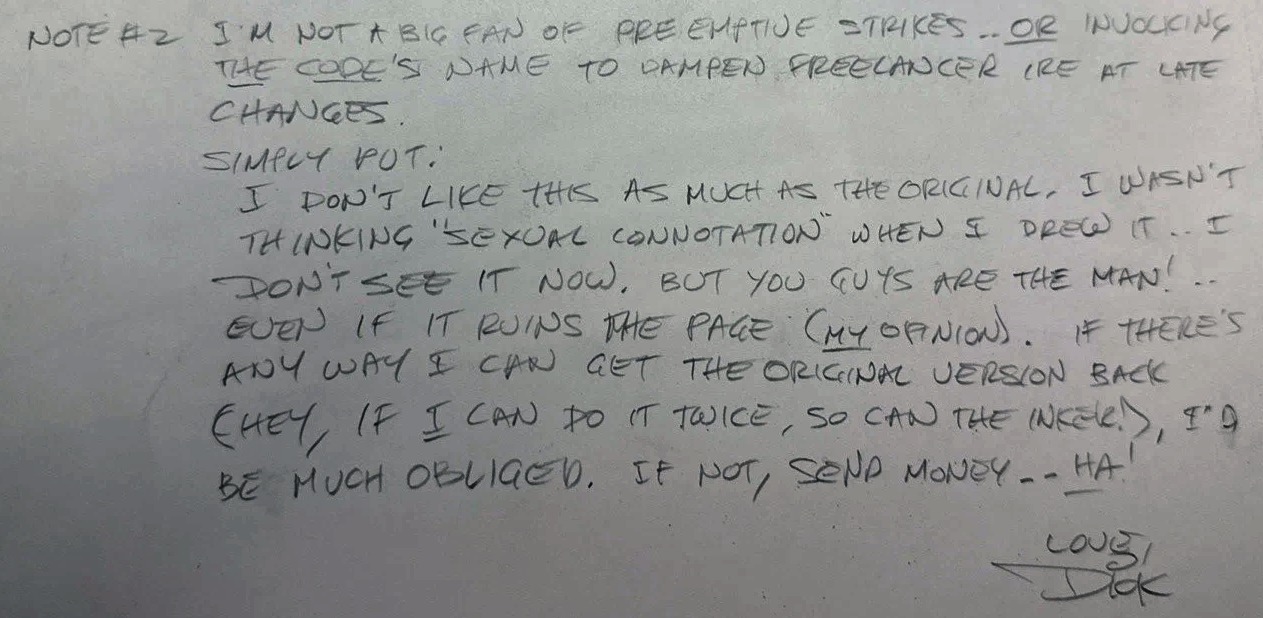 NOTE #2 I'M NOT A BIG FAN OF PREEMPTIVE STRIKES.. OR INVOCKING
THE CODE'S NAME TO DAMPEN FREELANCER IRE AT LATE
CHANGES.
SIMPLY PUT:
I DON'T LIKE THIS AS MUCH AS THE ORIGINAL. I WASN'T
THINKING "SEXUAL CONNOTATION" WHEN I DREW IT.. I
DON'T SEE IT NOW. BUT YOU GUYS ARE THE MAN! ..
EVEN IF IT RUINS THE PAGE (MY OPINION). IF THERE'S
ANY WAY I CAN GET THE ORIGINAL VERSION BACK
(HEY, IF I CAN DO IT TWICE, SO CAN THE INKER!), I'D
BE MUCH OBLIGED. IF NOT, SEND MONEY-- HA!
LOVE,
DICK